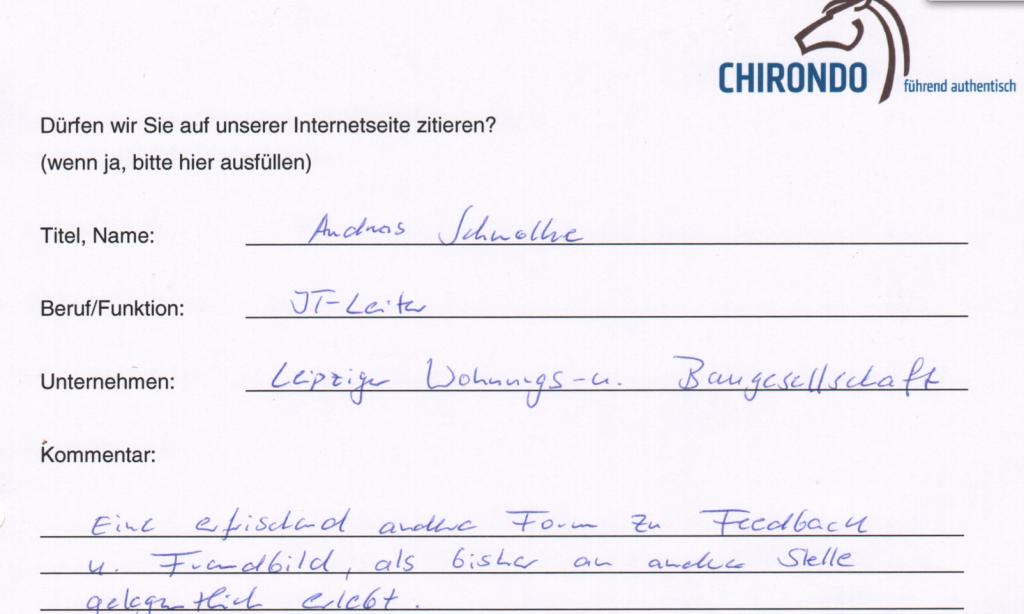 CHIRONDO führend authentisch
Dürfen wir Sie auf unserer Internetseite zitieren?
(wenn ja, bitte hier ausfüllen)
Titel, Name: Andreas Schwalbe
Beruf/Funktion: IT-Leiter
Unternehmen: Leipziger Wohnungs- u. Baugesellschaft
Kommentar:
Eine erfrischend andere Form zu Feedback
u. Fremdbild, als bisher an andere Stelle
gelegentlich erlebt.